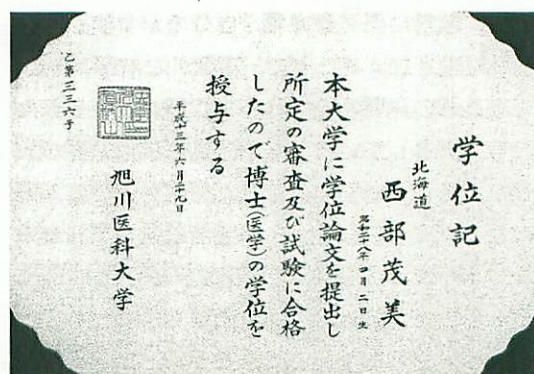 学位記
北海道
西部茂美
昭和三十八年四月二日生
本大学に学位論文を提出し
所定の審査及び試験に合格
したので博士(医学)の学位を
授与する
平成十三年六月二十九日
旭川医科大学
乙第三三六号